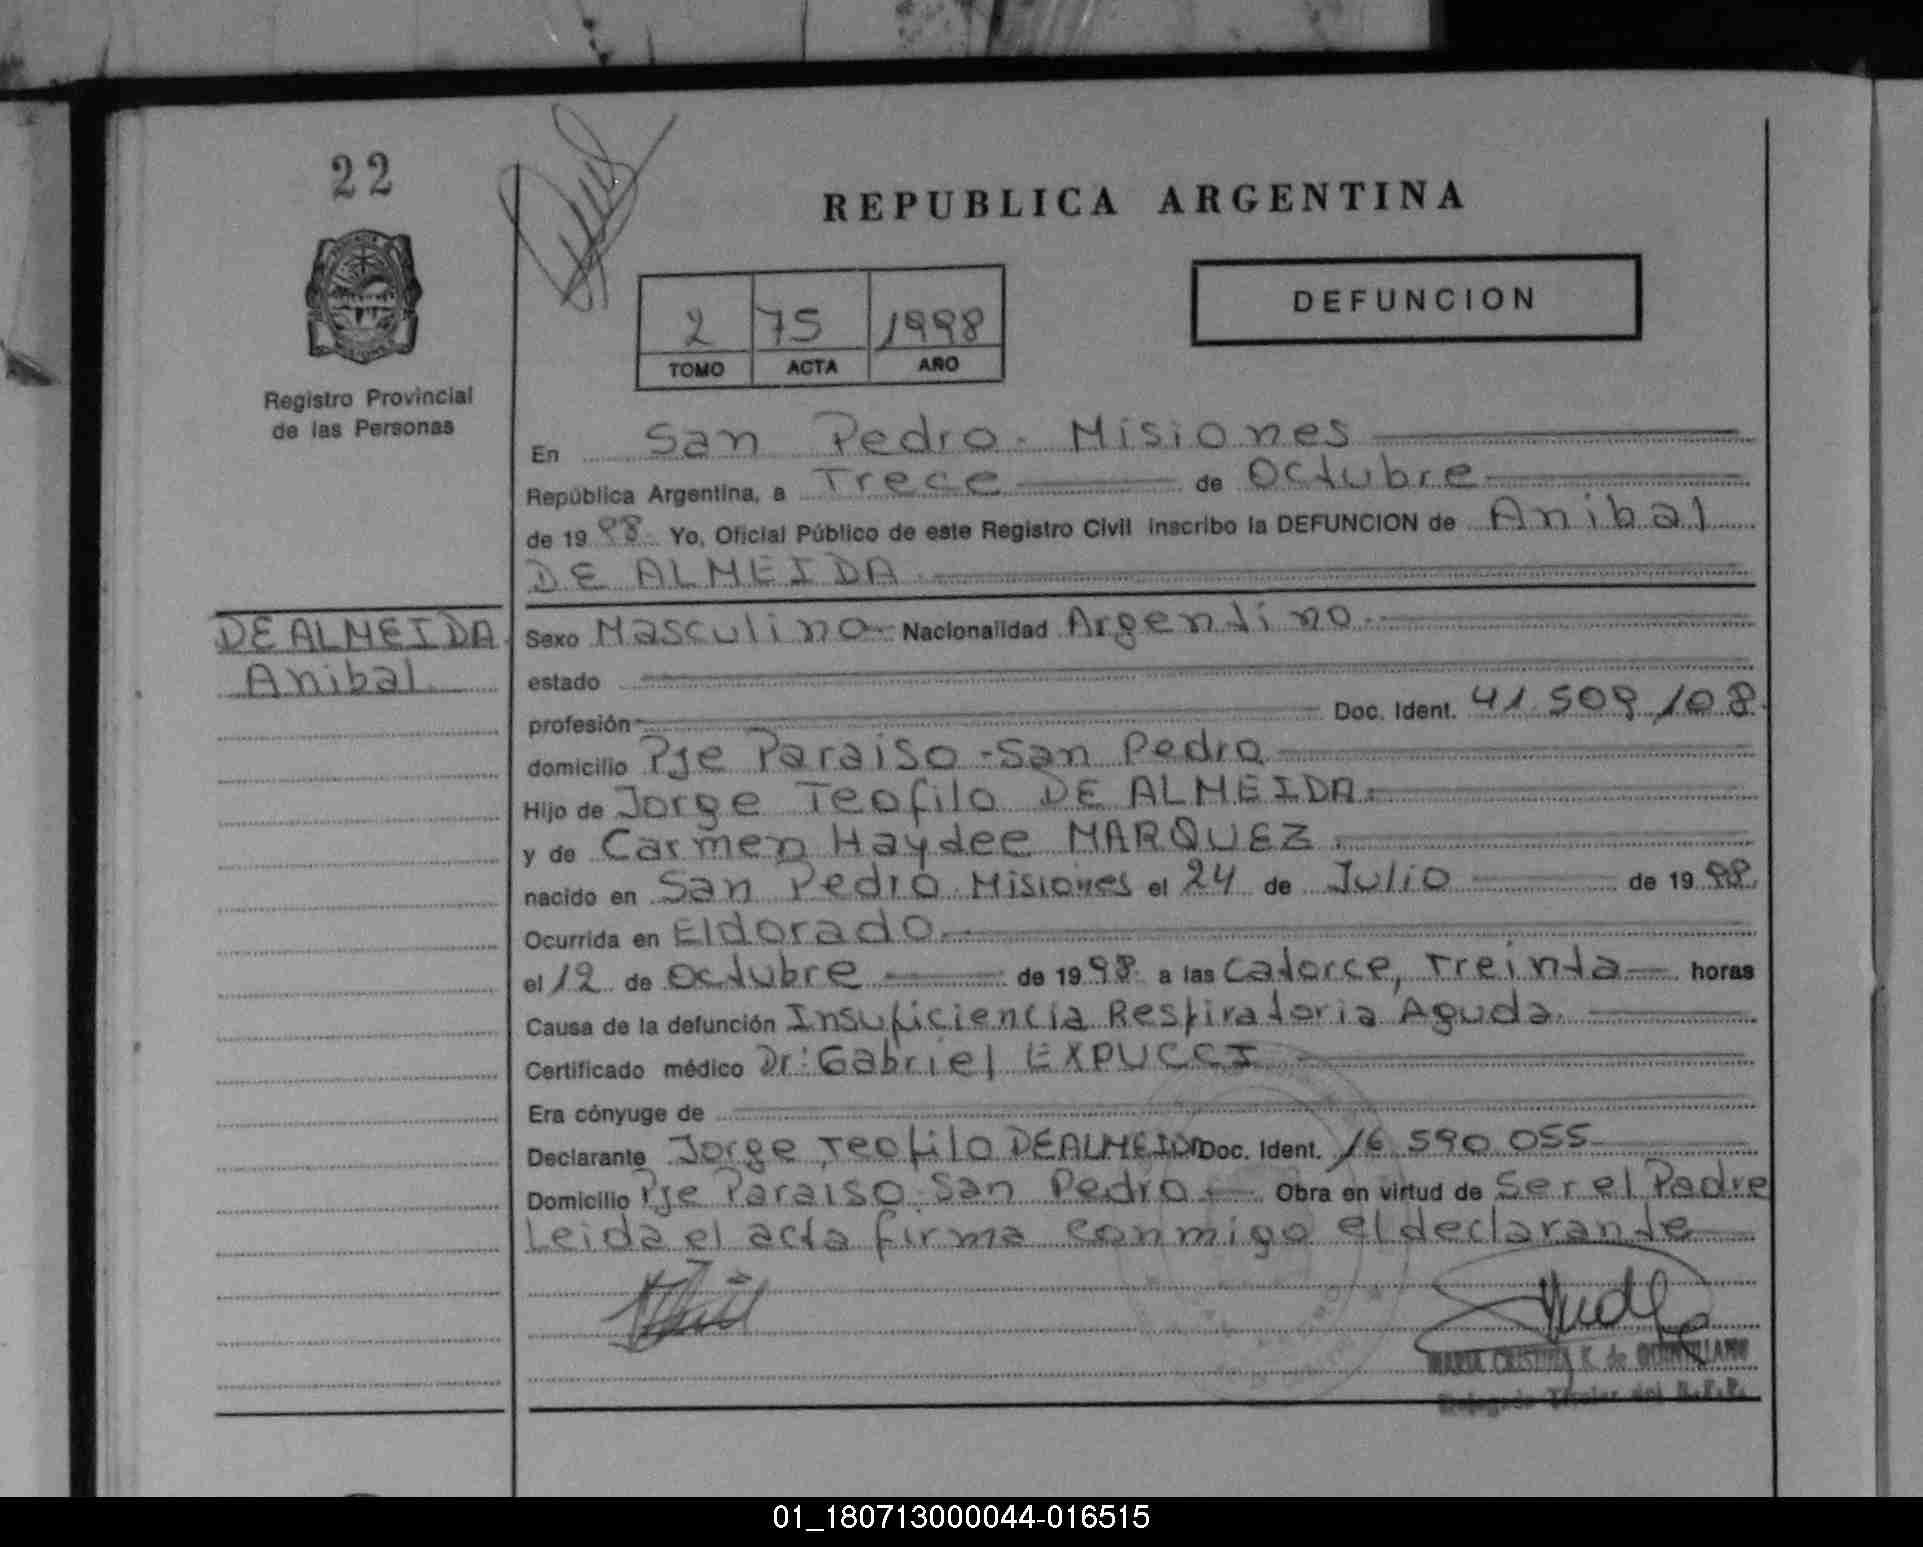 22
REPUBLICA ARGENTINA
DEFUNCION
2 75 1998
TOMO ACTA AÑO
Registro Provincial
de las Personas
En San Pedro - Misiones
República Argentina, a Trece de Octubre
de 1998. Yo, Oficial Público de este Registro Civil inscribo la DEFUNCION de Anibal
DE ALMEIDA
DE ALMEIDA
Anibal
Sexo Masculino - Nacionalidad Argentino
estado
profesión Doc. Ident. 41.509.108
domicilio Pje Paraiso - San Pedro
Hijo de Jorge Teofilo DE ALMEIDA
y de Carmen Haydee MARQUEZ
nacido en San Pedro Misiones el 24 de Julio de 1998
Ocurrida en Eldorado
el 12 de Octubre de 1998 a las Catorce, Treinta horas
Causa de la defunción Insuficiencia Respiratoria Aguda
Certificado médico Dr: Gabriel EXPUCCI
Era cónyuge de
Declarante Jorge Teofilo DE ALMEIDA Doc. Ident. 16.590.055
Domicilio Pje Paraiso San Pedro Obra en virtud de Ser el Padre
Leida el acta firma conmigo el declarante
MARIA CRISTINA K. de QUINTILLANO
Delegada Titular del R.P.P.
01_180713000044-016515